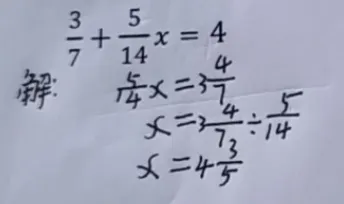 3/7 + 5/14 x = 4
解: 5/14 x = 3 4/7
x = 3 4/7 ÷ 5/14
x = 4 3/5